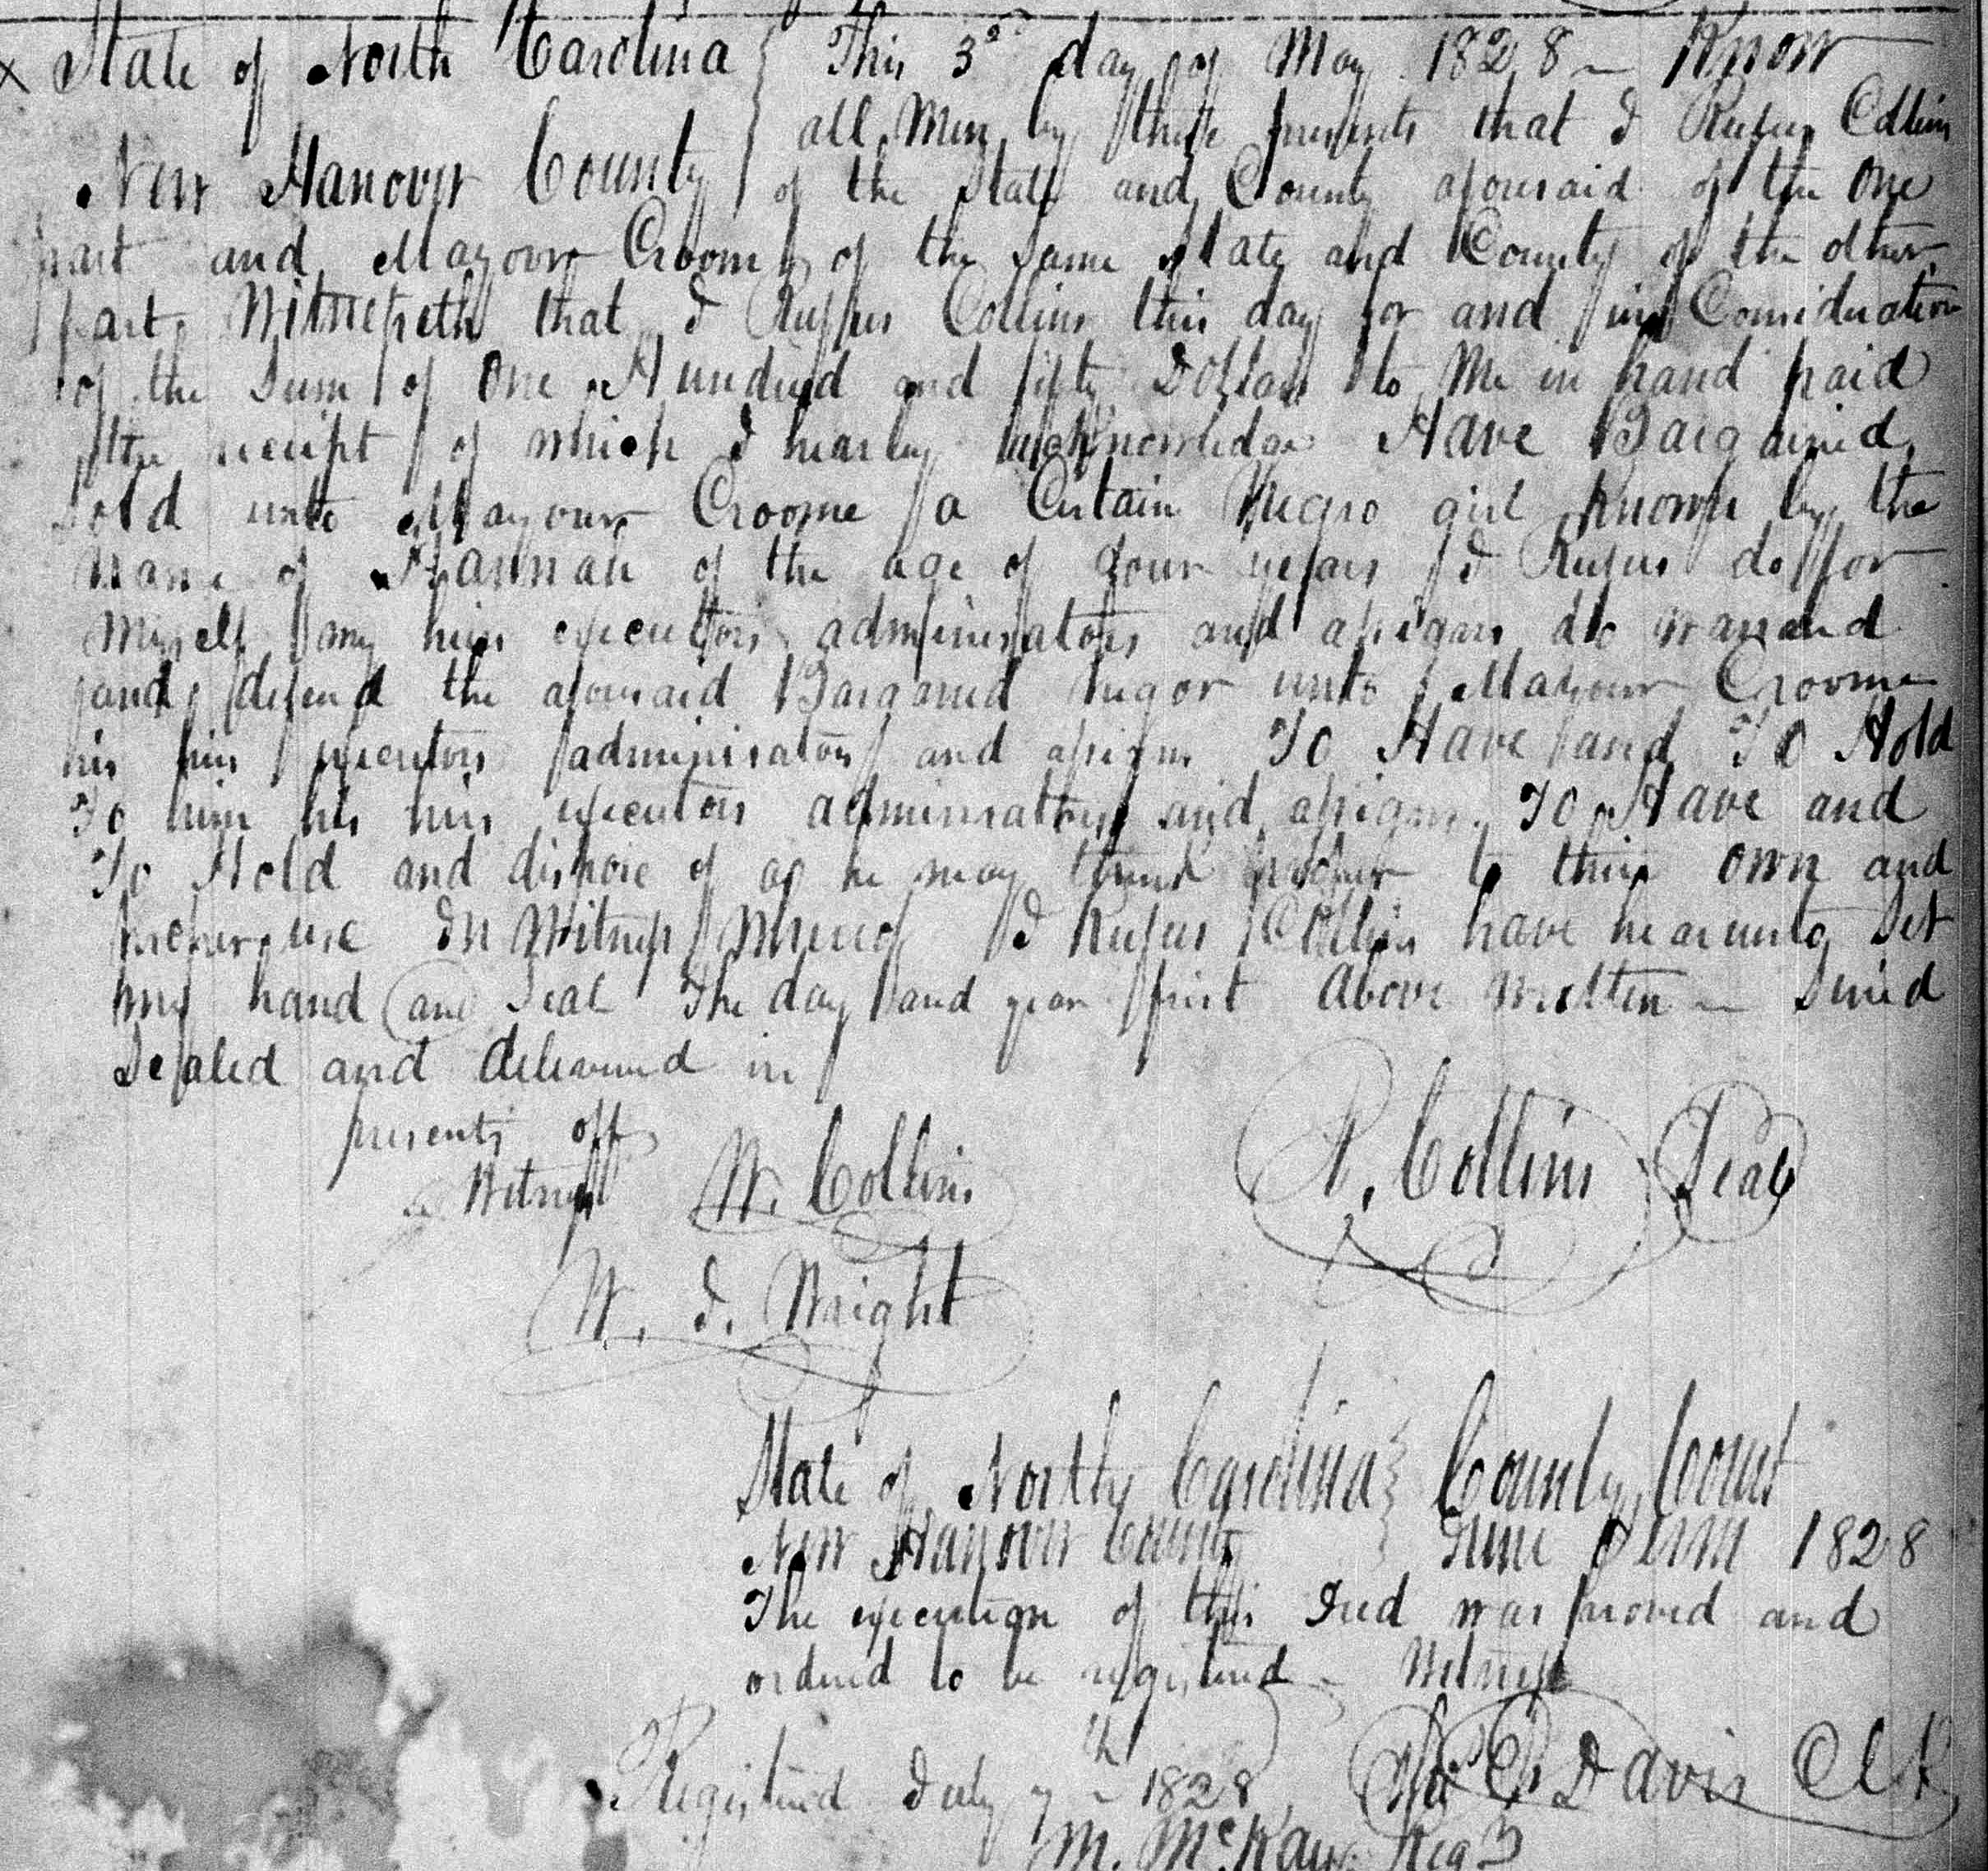 x State of North Carolina } This 3d day of May 1828 ~ Know
all Men by these presents that I Rufus Collins
New Hanover County } of the State and County aforesaid of the One
part and Mayour Croom of the Same State and County of the other
part Witnesseth that I Rufus Collins this day for and in Consideration
of the Sum of One Hundred and fifty Dollars to Me in hand paid
the receipt of which I hearby acknowledge Have Bargained
Sold unto Mayour Croome a Certain Negro girl known by the
name of Hannah of the age of four years I Rufus do for
Myself my heirs executors adminisators and assigns do warand
and defend the aforesaid Bargained negor unto Mayour Croome
his heirs executors adminisators and assigns To Have and To Hold
To him his heirs executors adminisators and assigns. To Have and
To Hold and dispose of as he may think propper to their own and
proper use In Witness Whereof I Rufus Collins have hearunto Set
my hand and Seal The day and year first Above written ~ Sined
Sealed and delivered in
presents off
Witness W. Collins R. Collins Seal
W. I. Wright
State of North Carolina } County Court
New Hanover County } June Term 1828
The execution of this Deed was proved and
ordered to be registered ~ Witness
Registered July 7th 1828 Davis Clk
M. McKay Reg